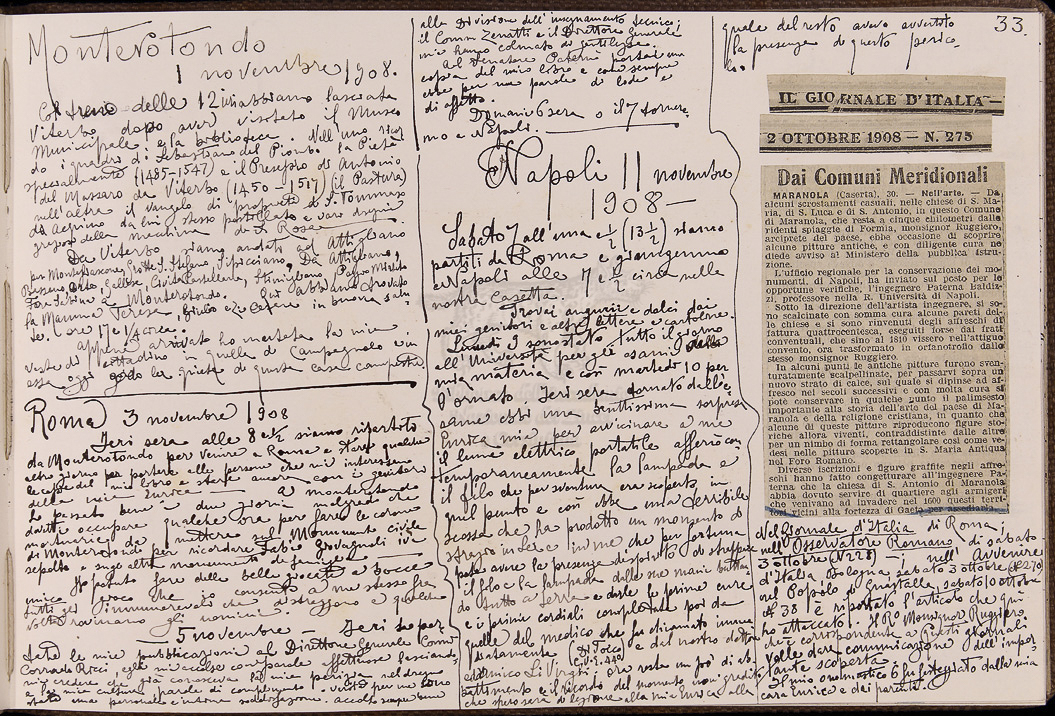 Monterotondo
1 novembre 1908.
Col treno delle 12 abbiamo lasciata
Viterbo dopo aver visitato il Museo
Municipale e la biblioteca. Nell'uno
i quadri di Sebastiano del Piombo. la Pietà
specialmente (1485-1547) e il Presepio di Antonio
del Massaro da Viterbo (1450-1517) (il Pastura)
nell'altra il vangelo di S. Tommaso
da Aquino da lui stesso postillato e vari disegni
della macchina di S. Rosa
Da Viterbo siamo andati ad Attigliano
per Montefiascone, Grotte S. Stefano, Da Attigliano,
Orte, Gallese, Civita Castellana, Stimigliano, Poggio Mirteto
Fara Sabina a Monterotondo.
la Mamma Teresa, abbiamo trovato
in buona salu
te. ore 17 e
Appena arrivato ho mutata la mia
veste di cittadino in quella di campagnolo con
la quiete di questa casa campestre
Roma 3 novembre 1908
Ieri sera alle 8 e ½ siamo ripartiti
da Monterotondo per venire a Roma e stare qualche
altro giorno per portare alle persone che mi interessano
le copie del mio libro e stare ancora con i genitori
della mia Enrica
Ho passato bene i due giorni a Monterotondo
malgrado che
dovetti occupare qualche ora per fare le corone
mortuarie da mettere sul Monumento civile
di Monterotondo per ricordare Fabio Giovagnoli ivi
sepolto e sugli altri monumenti di famiglia
Ho potuto fare delle belle giocate a bocce
unico gioco che io consento a me stesso fra
tutti gli innumerevoli che distraggono e qualche
volta rovinano gli uomini
5 novembre — Ieri ho por
tate le mie pubblicazioni al Direttore Generale Comm
Corrado Ricci egli mi accolse con parole affettuose lasciando
mi credere che già conosceva la mia perizia nel disegno
e la mia cultura, parole di complimento, venute per me sono
state una personale e intima soddisfazione. accolto sempre bene
alla Divisione dell'insegnamento tecnico;
il Comm Zenatti e il Direttore Generale
mi hanno colmato di gentilezze.
Al Senatore Paternò portai una
copia del mio libro e come sempre
ebbe per me parole di lode e
di affetto.
Domani 6 sera o il 7 tornere
mo a Napoli.
Napoli 11 novembre
1908 —
Sabato 7 all'una e ½ (13 ½) siamo
partiti da Roma e giungemmo
a Napoli alle 7 e ½ circa nella
nostra Casetta.
Trovai auguri e dolci dai
miei genitori e altre lettere e cartoline.
Lunedì 9 sono stato tutto il giorno
all'Università per gli esami della
mia materia e così martedì 10 per
l'ornato. Ieri sera tornato dall'e
same ebbi una bruttissima sorpresa
Enrica mia per avvicinare a me
il lume elettrico portatile afferrò con
temporaneamente la lampada e
il filo che per sventura era scoperto in
quel punto e così ebbe una terribile
scossa che ha prodotto un momento di
strazio in lei e in me che per fortuna
potei avere la presenza di spirito di strappare
il filo e la lampada dalle sue mani buttan
do tutto a terra e darle le prime cure
e i primi cordiali completate poi da
quelle del medico che fu chiamato imme
diatamente (Di Tocco) e dal nostro dottore
ed amico Li Virghi. Ora resta un po' di ab
battimento e il ricordo del momento
che spero sarà di lezione alla mia Enrica alla
quale del resto avevo avvertito
la presenza di questo perico
lo.
33.
IL GIORNALE D'ITALIA —
2 OTTOBRE 1908 — N. 275
Dai Comuni Meridionali
MARANOLA (Caserta), 30. — Nell'arte. — Da
alcuni scrostamenti casuali, nelle chiese di S. Ma-
ria, di S. Luca e di S. Antonio, in questo Comune
di Maranola, che resta a cinque chilometri dalle
ridenti spiagge di Formia, monsignor Ruggiero,
arciprete del paese, ebbe occasione di scoprire
alcune pitture antiche, e con diligente cura ne
diede avviso al Ministero della pubblica istru-
zione.
L'ufficio regionale per la conservazione dei mo-
numenti, di Napoli, ha inviato sul posto per le
opportune verifiche, l'ingegnere Paterna Baldiz-
zi, professore nella R. Università di Napoli.
Sotto la direzione dell'artista ingegnere, si so-
no scalcinate con somma cura alcune pareti del-
le chiese e si sono rinvenuti degli affreschi di
fattura quattrocentesca, eseguiti forse dai frati
conventuali, che sino al 1810 vissero nell'attiguo
convento, ora trasformato in orfanotrofio dallo
stesso monsignor Ruggiero.
In alcuni punti le antiche pitture furono sven-
turatamente scalpellinate, per passarvi sopra un
nuovo strato di calce, sul quale si dipinse ad af-
fresco nei secoli successivi e con molta cura si
potè conservare in qualche punto il palimsesto
importante alla storia dell'arte del paese di Ma-
ranola e della religione cristiana, in quanto che
alcune di queste pitture riproducono figure sto-
riche allora viventi, contraddistinte dalle altre
per un nimbo di forma rettangolare così come ve-
desi nelle pitture scoperte in S. Maria Antiqua
nel Foro Romano.
Diverse iscrizioni e figure graffite negli affre-
schi hanno fatto congetturare all'ingegnere Pa-
terna che la chiesa di S. Antonio di Maranola
abbia dovuto servire di quartiere agli armigeri
che venivano ad invadere nel 1600 questi terri-
tori vicini alla fortezza di Gaeta per assediarla.
Nel Giornale d'Italia di Roma;
nell'Osservatore Romano di sabato
3 ottobre (N 228) — nell'Avvenire
d'Italia Bologna, sabato 3 ottobre (N 270)
nel Popolo di Guastalla, sabato 10 ottobre
N 38 è riportato l'articolo che qui
ho attaccato. Il R.o Monsignor Ruggiero
corrispondente a questi giornali
volle dar comunicazione dell'impor
tante scoperta.
Il mio onomastico fu festeggiato dalla mia
cara Enrica e dai parenti.